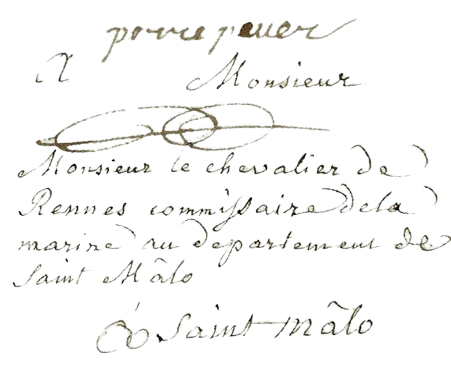 porre payer
A Monsieur
Monsieur le chevalier de
Rennes commissaire dela
marine au departement de
Saint Mâlo
à Saint mâlo